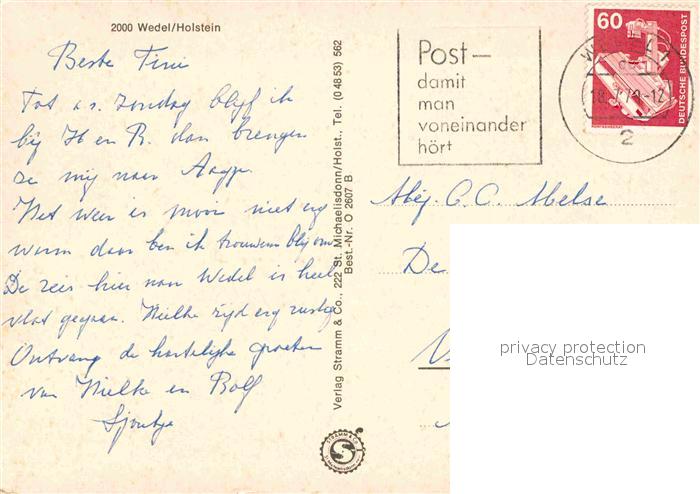 2000 Wedel/Holstein
Beste Fini
Tot a.s. Zondag blijf ik
bij H en R. dan brengen
ze mij naar
Het weer is mooi niet erg
warm daar ben ik trouwens blij om
De reis hier naar Wedel is heel
vlot gegaan. Wielke rijd erg rustig
Ontvang de hartelijke groeten
van Wielke en Rolf
Sjoukje
Verlag Stramm & Co., 222 St. Michaelisdonn/Holst., Tel. (0 48 53) 562
Best.-Nr. O 2607 B
STRAMM & CO.
Post-
damit
man
voneinander
hört
60
DEUTSCHE BUNDESPOST
2
Mej. C. C. Melse
De
privacy protection
Datenschutz